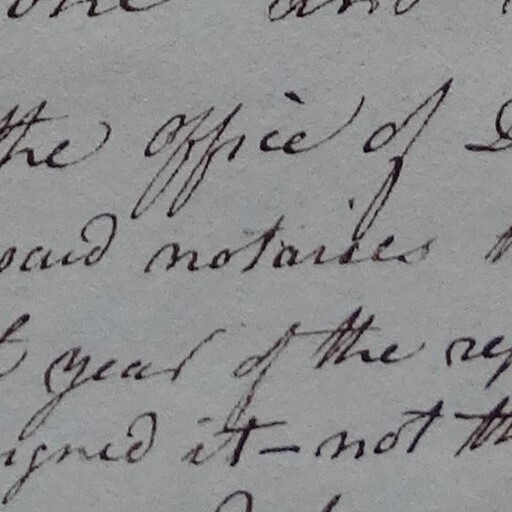 and
the office of
said notaries
year of the rep
igned it - not th